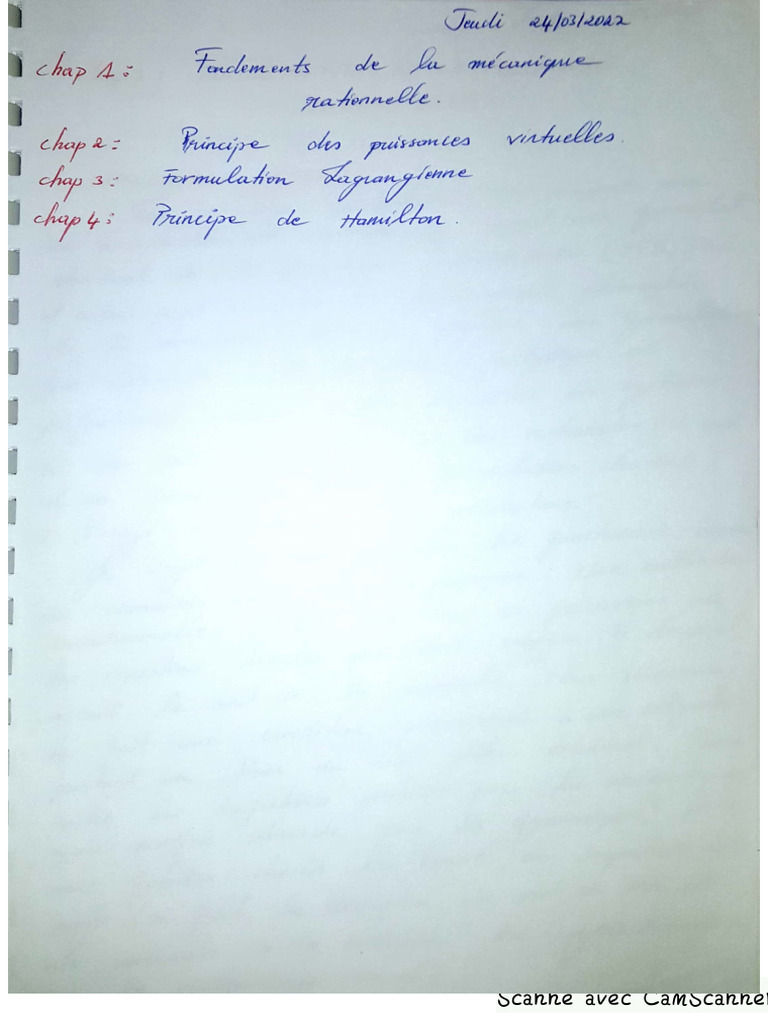 Jeudi 24/03/2022
chap 1 : Fondements de la mécanique
rationnelle.
chap 2 : Principe des puissances virtuelles.
chap 3 : Formulation Lagrangienne
chap 4 : Principe de Hamilton.
Scanné avec CamScanner